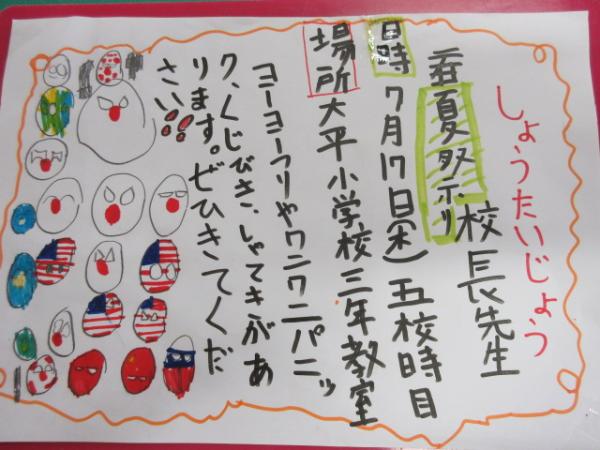 しょうたいじょう
校長先生
春夏祭ホリ
日時 7月17日(木) 五校時目
場所 大平小学校三年教室
ヨーヨーつりやワニワニパニッ
ク、くじびき、しゃてきがあ
ります。ぜひきてくだ
さい!!